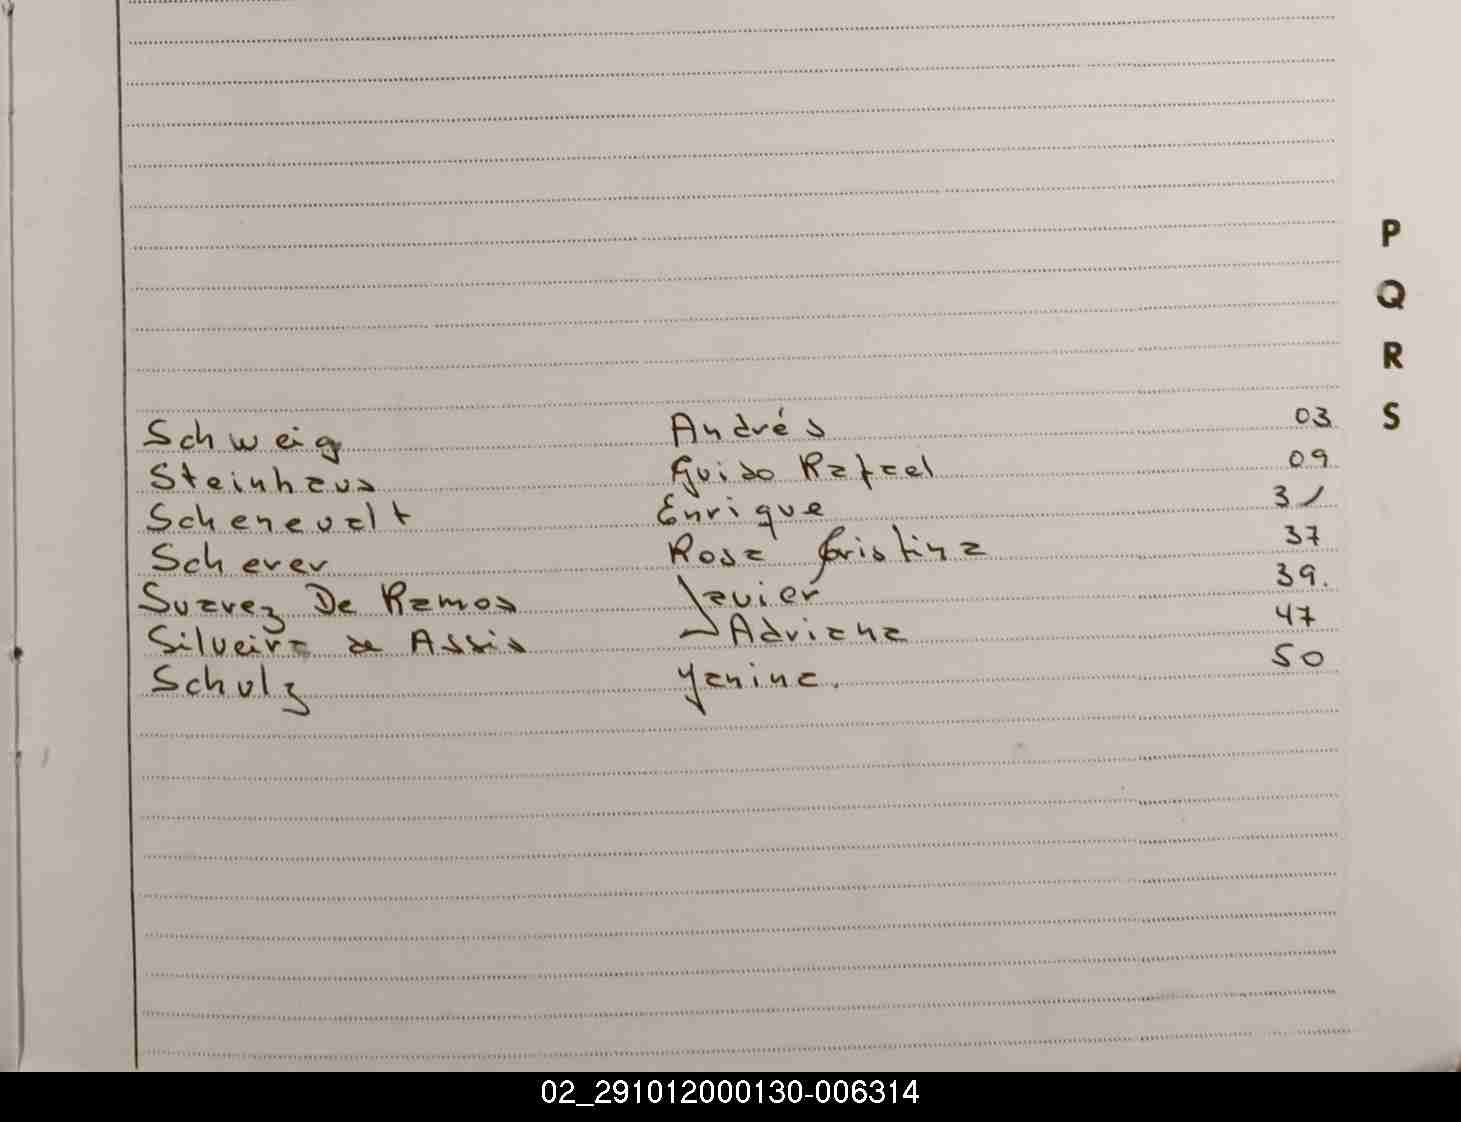 P
Q
R
S
Schweig Andrés 03
Steinhaus Guido Rafael 09
Scheneualt Enrique 31
Scherer Rosa Cristina 37
Suarez De Ramos Javier 39.
Silveira de Assis Adriana 47
Schulz Yanina. 50
02_291012000130-006314